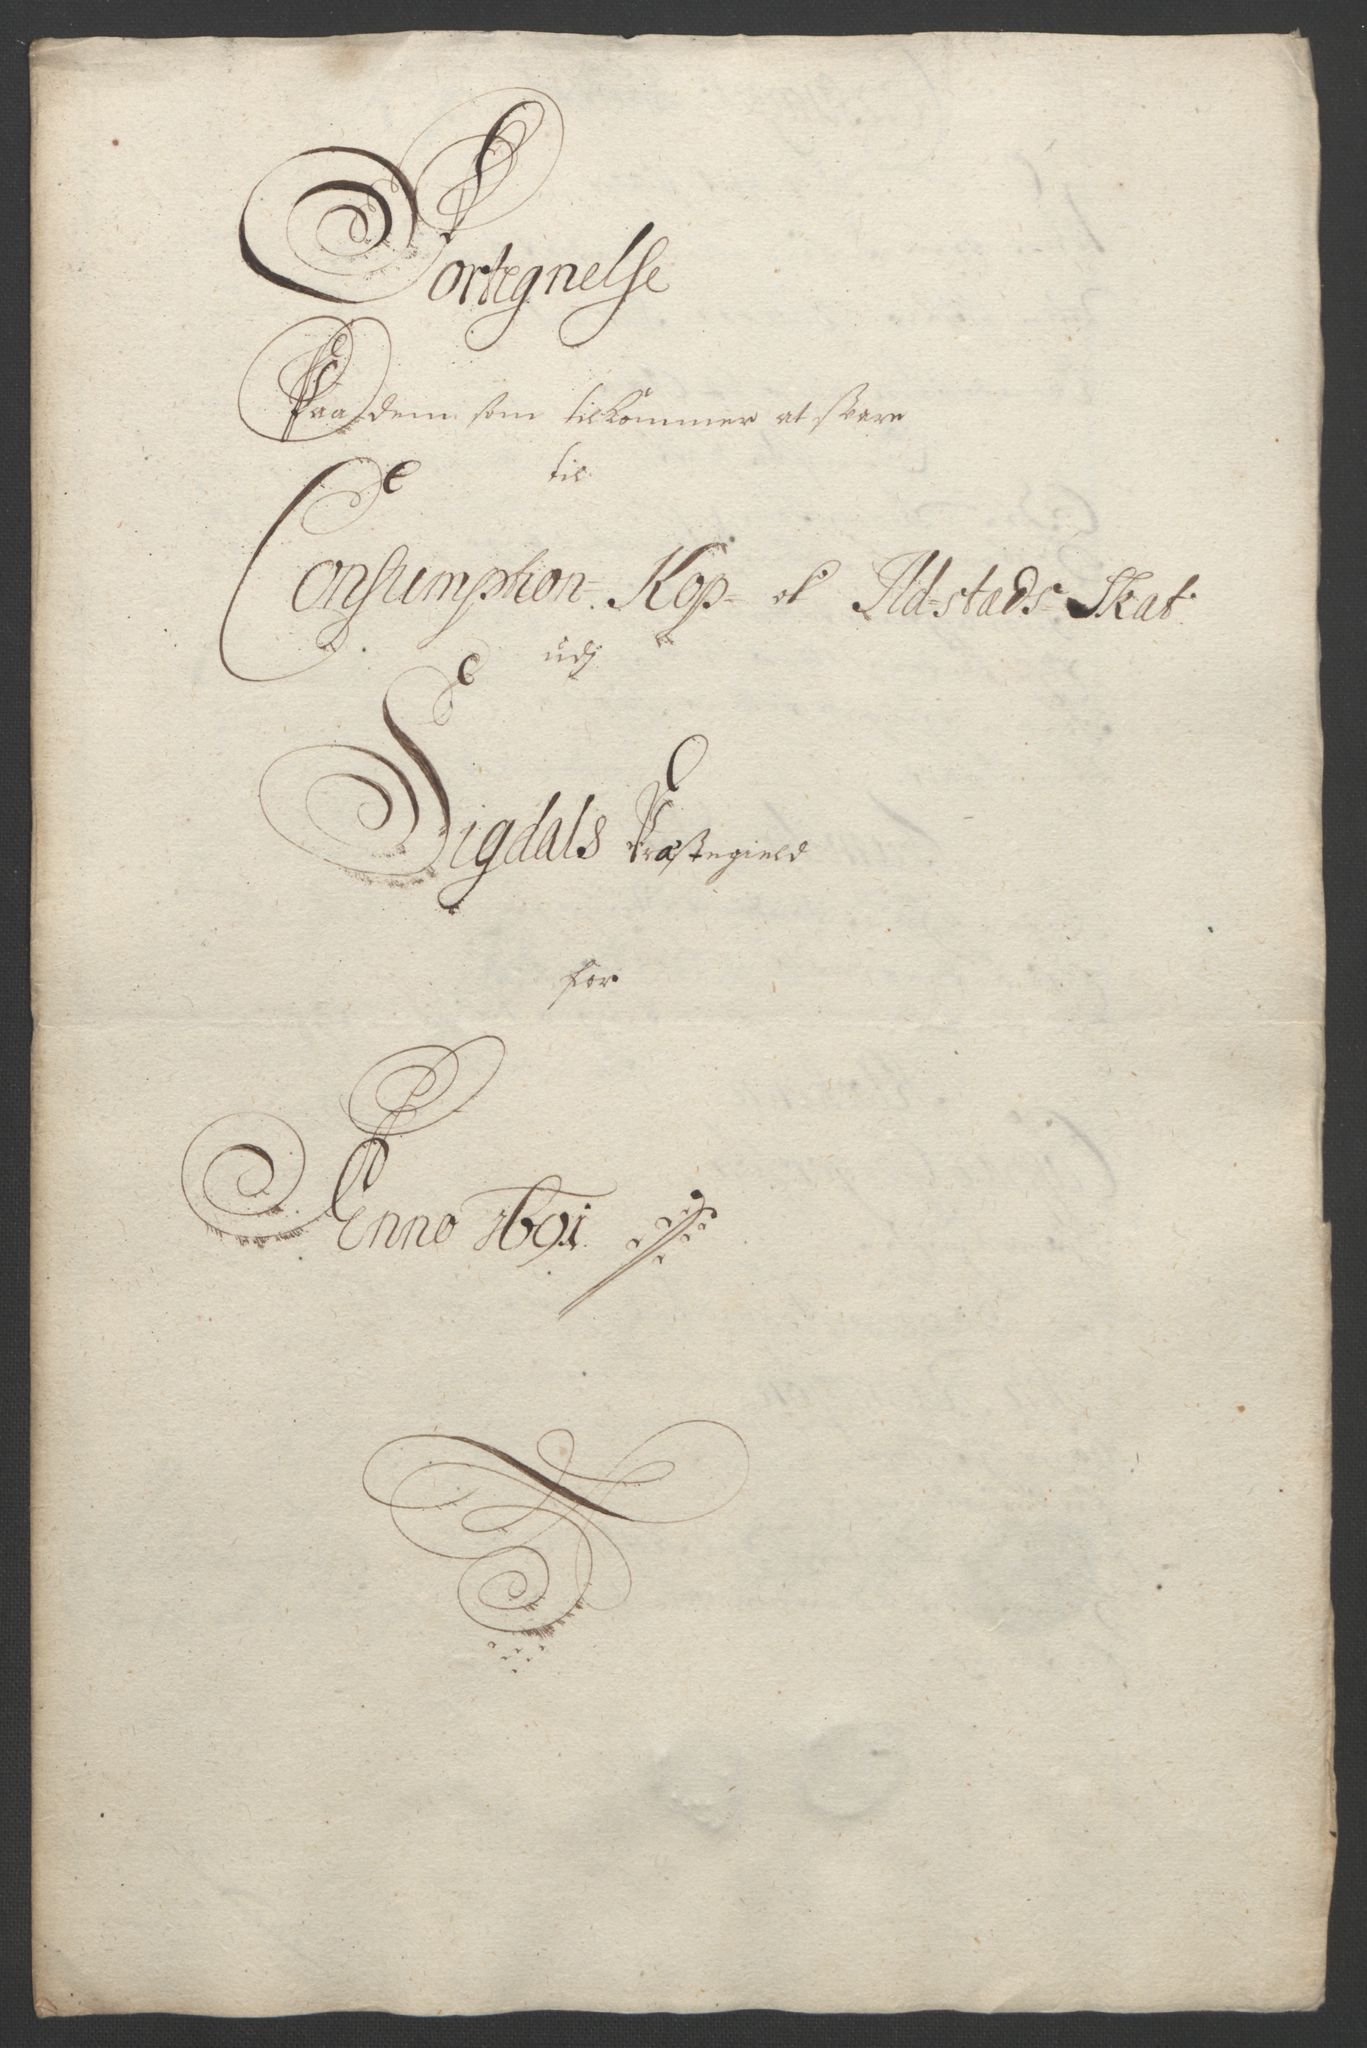 Fortegnelse
Paa dem som tilkommer at svare
til
Consumption- Kop- et Ild-stads Skat
udj
Sigdals Præstegield
for
Anno 1691